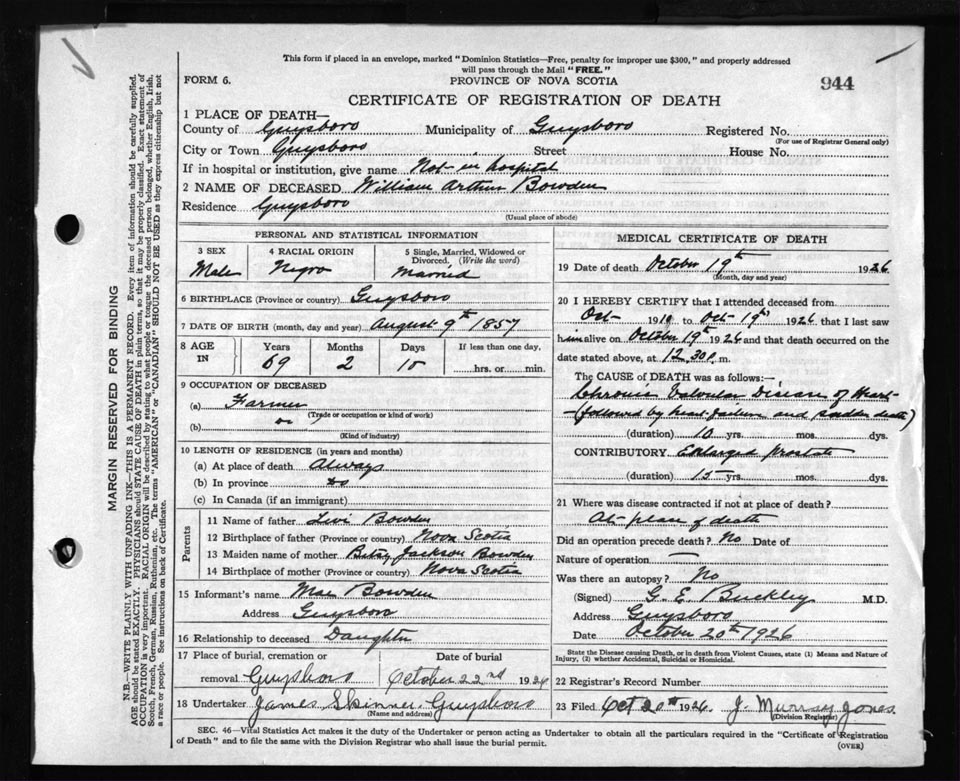 This form if placed in an envelope, marked "Dominion Statistics—Free, penalty for improper use $300," and properly addressed
will pass through the Mail "FREE."
FORM 6.
PROVINCE OF NOVA SCOTIA
944
CERTIFICATE OF REGISTRATION OF DEATH
1 PLACE OF DEATH—
County of Guysboro Municipality of Guysboro Registered No.
(For use of Registrar General only)
City or Town Guysboro Street House No.
If in hospital or institution, give name Not in hospital
2 NAME OF DECEASED William Arthur Bowden
Residence Guysboro
(Usual place of abode)
PERSONAL AND STATISTICAL INFORMATION
3 SEX 4 RACIAL ORIGIN 5 Single, Married, Widowed or
Divorced. (Write the word)
Male Negro Married
6 BIRTHPLACE (Province or country) Guysboro
7 DATE OF BIRTH (month, day and year) August 9th 1857
8 AGE IN Years Months Days If less than one day,
69 2 10 hrs. or min.
9 OCCUPATION OF DECEASED
(a) Farmer
(Trade or occupation or kind of work)
(b)
(Kind of industry)
10 LENGTH OF RESIDENCE (in years and months)
(a) At place of death Always
(b) In province do
(c) In Canada (if an immigrant)
Parents
11 Name of father Levi Bowden
12 Birthplace of father (Province or country) Nova Scotia
13 Maiden name of mother Betsy Jackson Bowden
14 Birthplace of mother (Province or country) Nova Scotia
15 Informant's name Mae Bowden
Address Guysboro
16 Relationship to deceased Daughter
17 Place of burial, cremation or Date of burial
removal Guysboro October 22nd 1926
18 Undertaker James Skinner Guysboro
(Name and address)
MEDICAL CERTIFICATE OF DEATH
19 Date of death October 19th 1926
(Month, day and year)
20 I HEREBY CERTIFY that I attended deceased from
Oct 1910 to Oct 19th 1926 that I last saw
him alive on October 19th 1926 and that death occurred on the
date stated above, at 12.30 p. m.
The CAUSE of DEATH was as follows:—
Chronic Valvular Disease of Heart
(followed by heart failure and sudden death)
(duration) 10 yrs. mos. dys.
CONTRIBUTORY Enlarged Prostate
(duration) 15 yrs. mos. dys.
21 Where was disease contracted if not at place of death?
At place of death
Did an operation precede death? No Date of
Nature of operation —
Was there an autopsy? No
(Signed) G. E. Buckley M.D.
Address Guysboro
Date October 20th 1926
State the Disease causing Death, or in death from Violent Causes, state (1) Means and Nature of
Injury, (2) whether Accidental, Suicidal or Homicidal.
22 Registrar's Record Number
23 Filed Oct 20th 1926 J. Murray Jones
(Division Registrar)
SEC. 46—Vital Statistics Act makes it the duty of the Undertaker or person acting as Undertaker to obtain all the particulars required in the "Certificate of Registration
of Death" and to file the same with the Division Registrar who shall issue the burial permit.
(OVER)
MARGIN RESERVED FOR BINDING
N.B.—WRITE PLAINLY WITH UNFADING INK—THIS IS A PERMANENT RECORD. Every item of information should be carefully supplied.
AGE should be stated EXACTLY. PHYSICIANS should STATE CAUSE OF DEATH in plain terms, so that it may be properly classified. Exact statement of
OCCUPATION is very important. RACIAL ORIGIN will be described by stating to what people or tongue the deceased person belonged, whether English, Irish,
Scotch, French, German, Russian, Ruthenian, etc. The terms "AMERICAN" or "CANADIAN" SHOULD NOT BE USED as they express citizenship but not
a race or people. See instructions on back of Certificate.